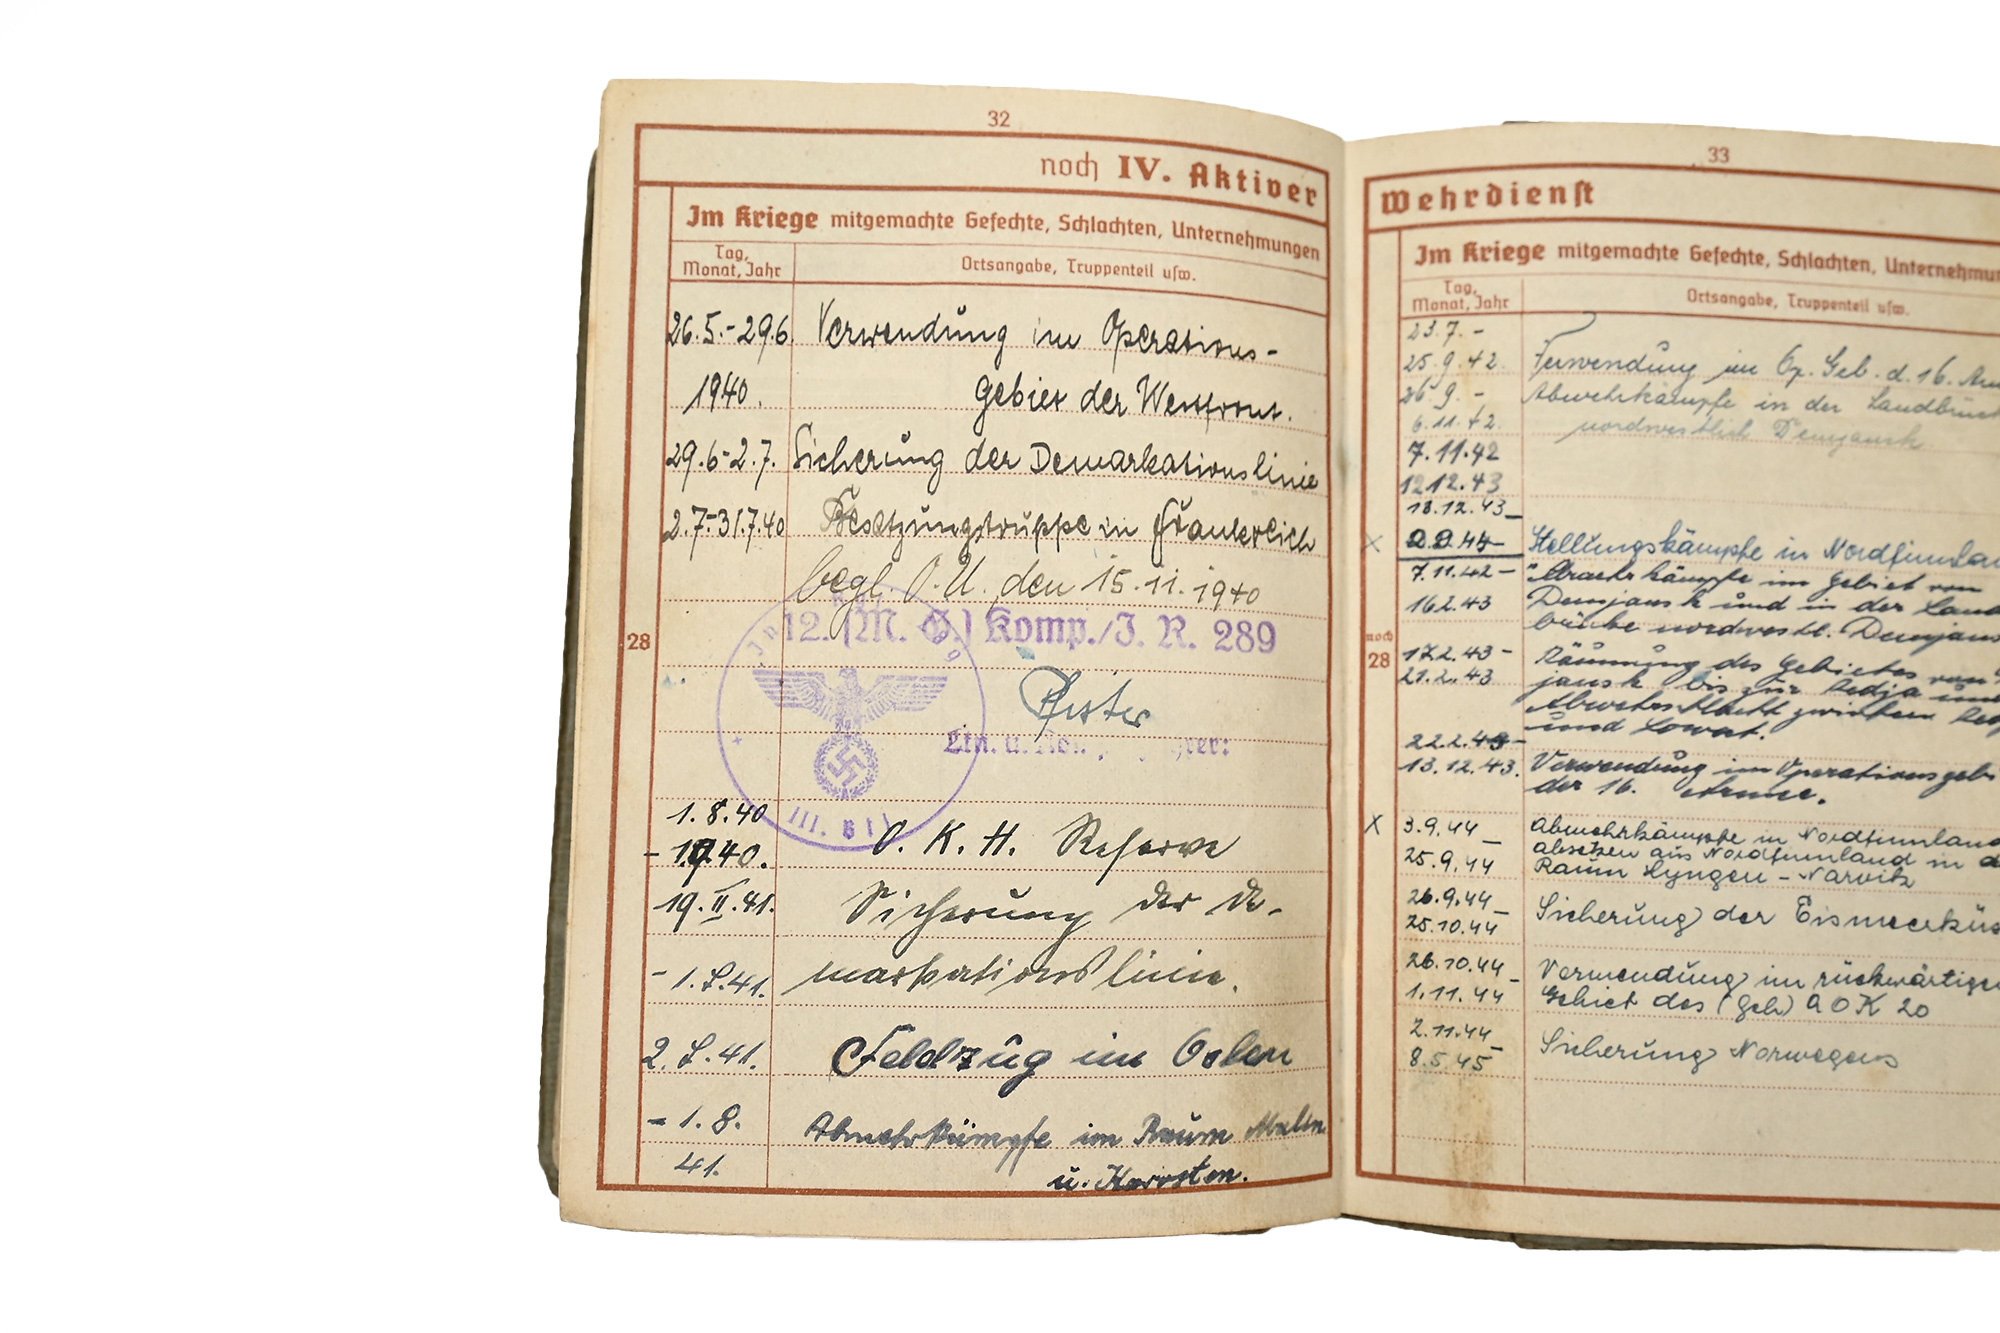 32
noch IV. Aktiver
Im Kriege mitgemachte Gefechte, Schlachten, Unternehmungen
Tag, Monat, Jahr
Ortsangabe, Truppenteil usw.
26.5.-29.6. Verwendung im Operations-
1940. gebiet der Westfront.
29.6-2.7. Sicherung der Demarkationslinie
2.7.-31.7.40 Besetzungstruppe in Frankreich
begl. O. U., den 15.11.1940
12. (M. G.) Komp./I. R. 289
28
Ltn. u.
III.
1.8.40
O. K. H. Reserve
19.II.41. Sicherung der De-
-1.7.41. markationslinie.
2.7.41. Feldzug im Osten
-1.8. Abwehrkämpfe im Raum
41. u.
33
Wehrdienst
Im Kriege mitgemachte Gefechte, Schlachten,
Tag, Monat, Jahr
Ortsangabe, Truppenteil usw.
23.7.-
25.9.42. Verwendung im Op. Geb. d. 16.
26.9.- Abwehrkämpfe in der
6.11.42. nordwestlich Demjansk
7.11.42
12.12.43
18.12.43-
x 2.9.44- Stellungskämpfe in
7.11.42- Abwehrkämpfe im Gebiet von
16.2.43 Demjansk und in der
nordwestl.
noch
28
17.2.43- Räumung des Gebietes von
21.2.43 bis zur Redja und
Abwehrschlacht zwischen
und Lowat.
22.2.43-
13.12.43. Verwendung im
der 16. Armee.
x 3.9.44- Abwehrkämpfe in
absetzen aus Nordfinnland in
25.9.44 Raum Lyngen-Narvik
26.9.44- Sicherung der
25.10.44
26.10.44- Verwendung im
1.11.44 Gebiet des (Geb) AOK 20
2.11.44- Sicherung Norwegens
8.5.45